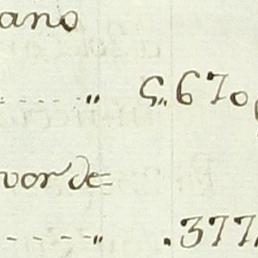 ano
------ " 5„670
vor de=
------ " .377